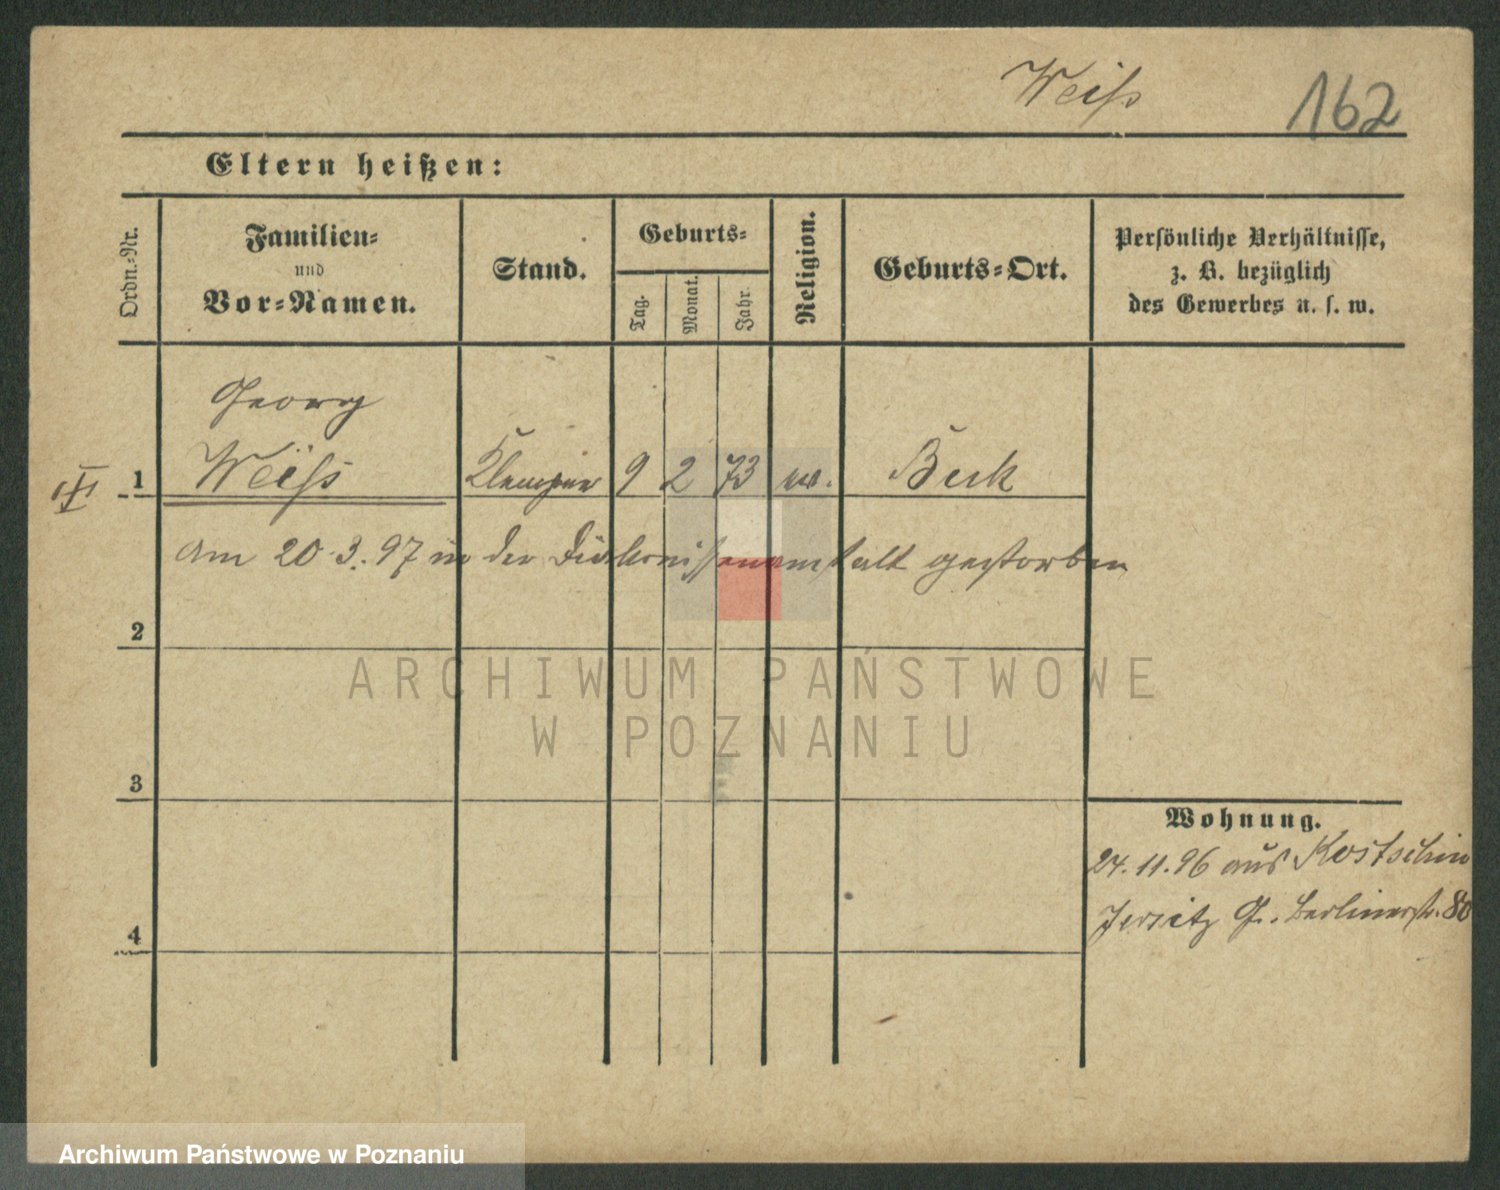 Weiß
162
Eltern heißen:
Ordn.-Nr.
Familien-
und
Vor-Namen.
Stand.
Geburts-
Tag.
Monat.
Jahr.
Religion.
Geburts-Ort.
Persönliche Verhältnisse,
z. B. bezüglich
des Gewerbes u. s. w.
Georg
1 Weiß Klempner 9 2 73 Buk
am 20.3.97 in der Diakonissenanstalt gestorben
2
3
4
Wohnung.
24.11.96 aus Kostschin
Jersitz Gr. Berlinerstr. 80
ARCHIWUM PAŃSTWOWE
W POZNANIU
Archiwum Państwowe w Poznaniu